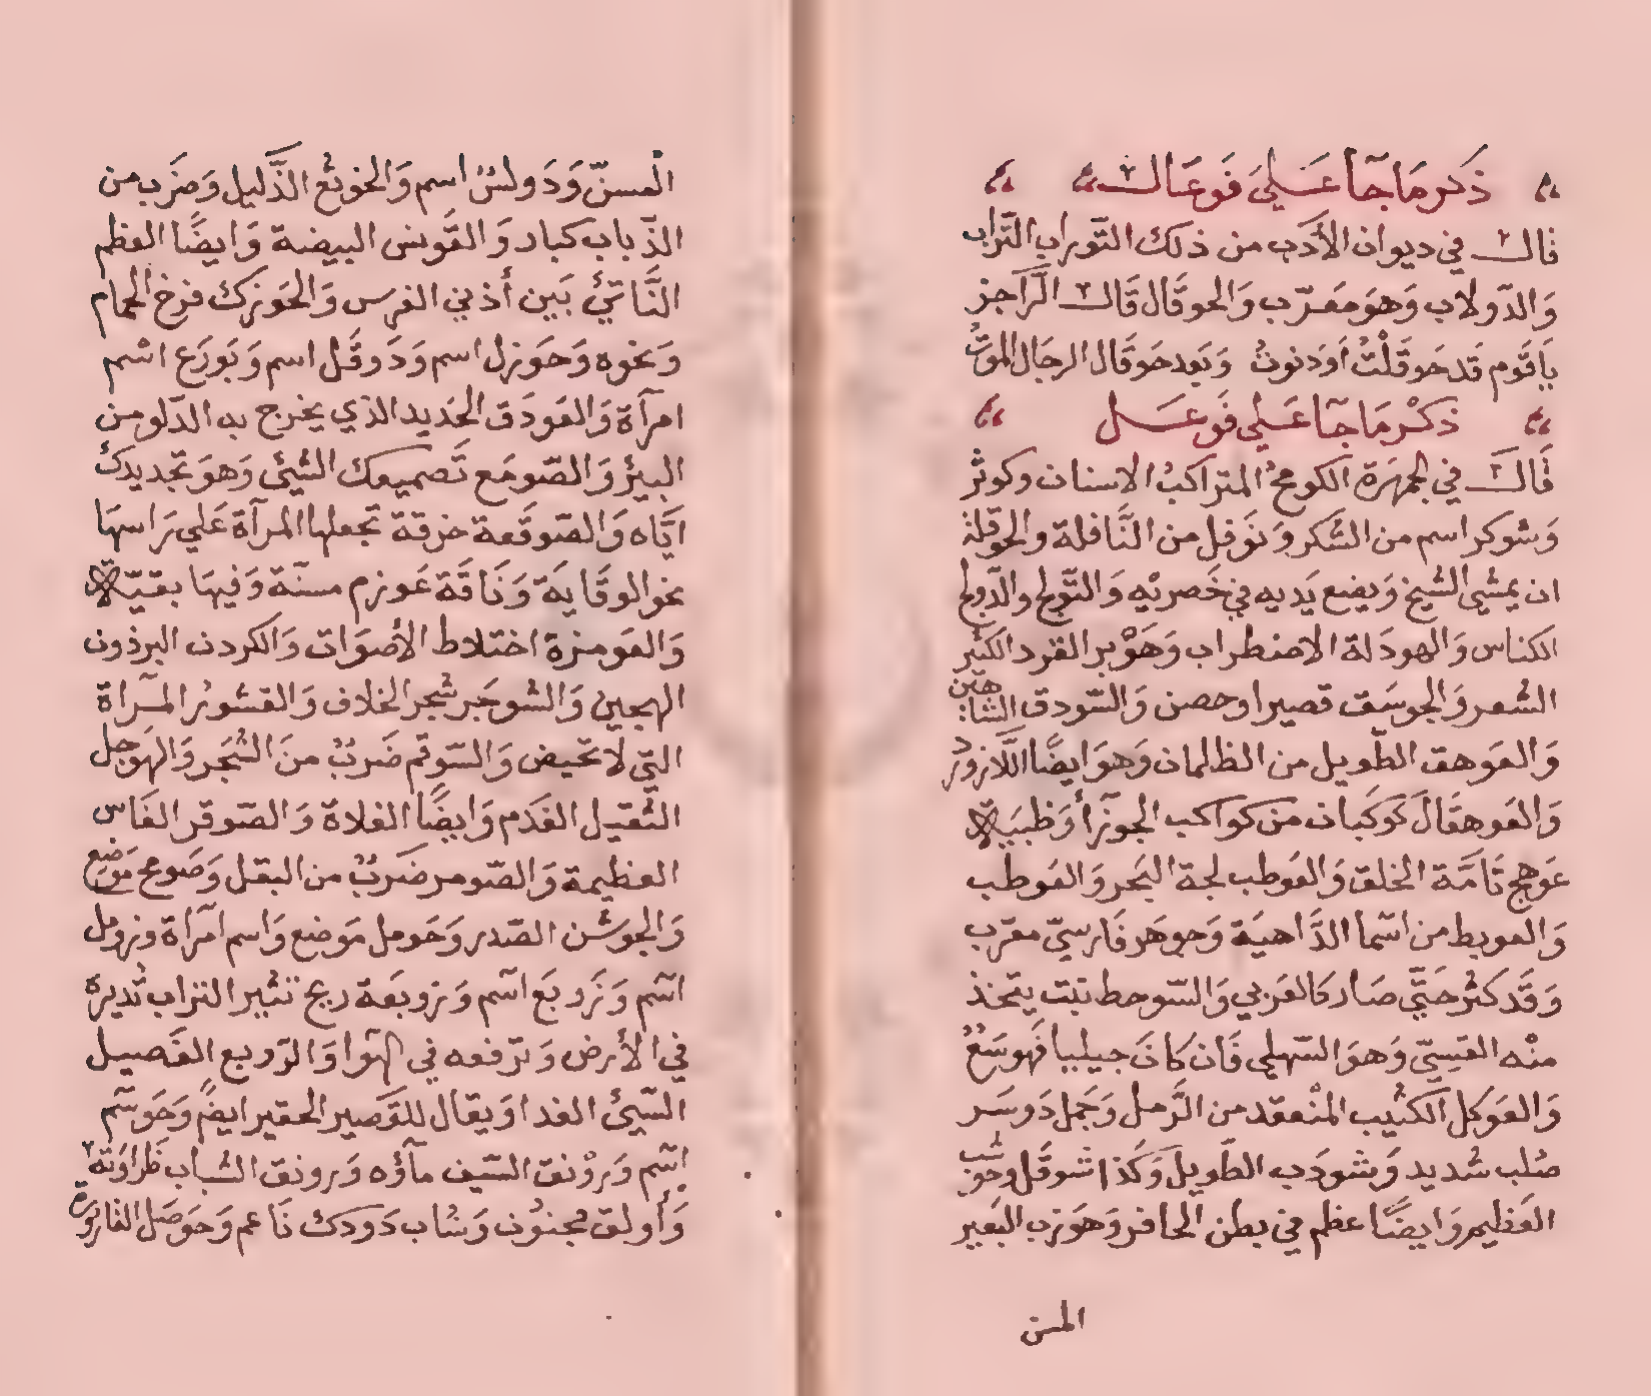 ذكر ما جآ علي فوعال
قال في ديوان الأدب من ذلك التوراب التراب
والدولاب وهو معرب والحوقال قال الراجز
يا قوم قد حوقلت أو دنوت وبعد حوقال الرجال الموت
ذكر ما جآ علي فوعل
قال في الجمهرة الكومح المتراكب الاسنان وكوثر
وشوكر اسم من الشكر ونوفل من النافلة والحوقلة
ان يمشي الشيخ ويضع يديه في خصريه والتولج والدولج
الكناس والهودلة الاضطراب وهوبر القرد الكثير
الشعر والجوسق قصر او حصن والسودق الشاهين
والعوهق الطويل من الظلمان وهو ايضا اللازورد
والعوهقان كوكبان من كواكب الجوزآ وظبية
عوهج تامة الخلق والعوطب لجة البحر والعوطب
والعوبط من اسما الداهية وجوهر فارسي معرب
وقد كثر حتي صار كالعربي والشوحط نبت يتخذ
منه القسي وهو السهلي فان كان جبليا فهو
والعوكل الكثيب المنعقد من الرمل وجمل دوسر
صلب شديد وشودب الطويل وكذا شوقل وحوشب
العظيم وايضا عظم في بطن الحافر وهوزب البعير
المسن
المسن ودولس اسم والخوتع الذليل وضرب من
الذباب كبار والقونس البيضة وايضا العظم
الناتئ بين أذني الفرس والجوزك فرخ الحمام
ونحوه وحوزل اسم ودوقل اسم وبوزع اسم
امرآة والعودق الحديد الذي يخرج به الدلو من
البيئر والصومع تصميعك الشيئ وهو تحديدك
اياه والصوقعة خرقة تجعلها المرآة علي راسها
نحو الوقاية وناقة عوزم مسنة وفيها بقية
والعومرة اختلاط الأصوات والكودن البرذون
الهجين والشوحر شجر الخلاف والقشور المرآة
التي لا تحيض والسوقم ضرب من الشجر والهوجل
الثقيل الفدم وايضا الفلاة والصوقر الفاس
العظيمة والصومر ضرب من البقل وصومح موضع
والجوشن الصدر وحومل موضع واسم امرآة وزومل
اسم وزوبع اسم وزوبعة ريح تثير التراب تديره
في الأرض وترفعه في الهوا والروبع الفصيل
السيئ الغدا ويقال للقصير الحقير ايضا وحوسم
اسم ورونق السيف مآؤه ورونق الشباب طراوته
وأولق مجنون وشاب دودك ناعم وحوصل القارورة